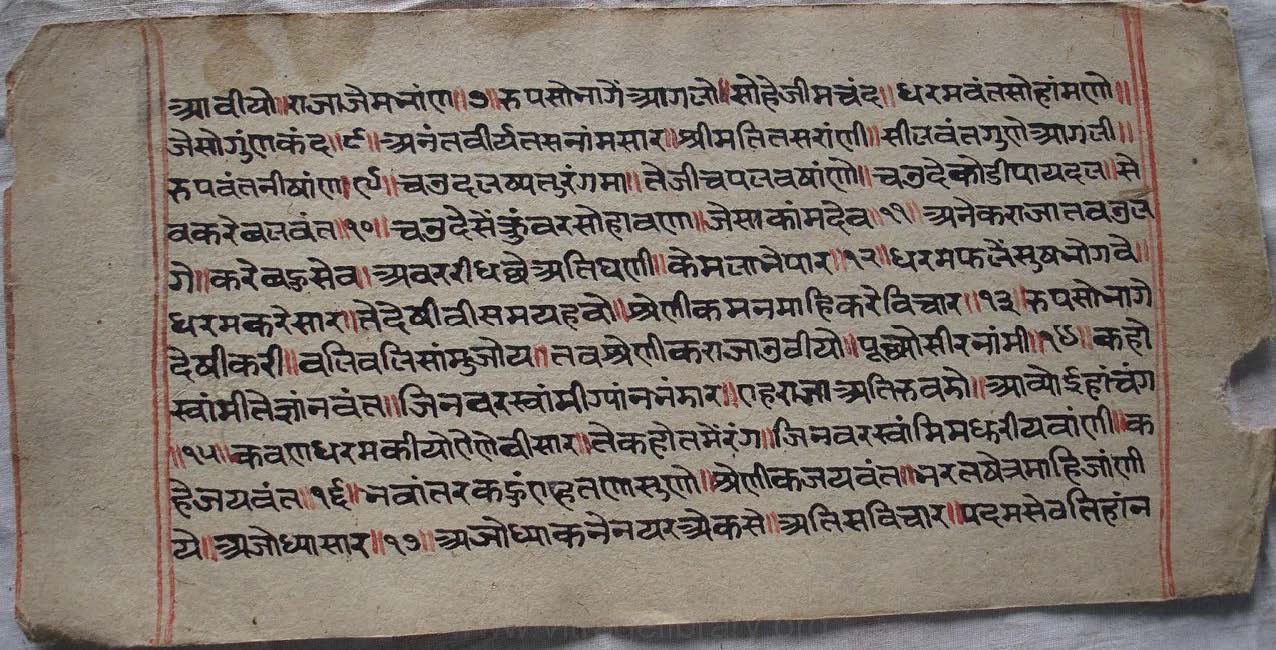 आवीयो॥राजाजेमभांण॥७॥रुपसोभागें आगलो॥सोहेजीमचंद॥धरमवंतसोहांमणो॥
जेसोगुंणकंद॥८॥अनंतवीर्यतसनांमसार॥श्रीमतितसरांणी॥सीलवंतगुणेआगली॥
रुपवंतनीषांण॥९॥चउदलष्यतुरंगमा॥तेजीचपलवषांणो॥चउदेकोडीपायदल॥से
वकरेबलवंत॥१०॥चउदेसेंकुंवरसोहावणा॥जेसाकांमदेव॥११॥अनेकराजातवउल
गे॥करेबहुसेव॥अवररीधछेअतिघणी॥केमलाभेपार॥१२॥धरमफलेंसुषभोगवे॥
धरमकरेसार॥तेदेषीवीसमयहवो॥श्रेणीकमनमाहिकरेविचार॥१३॥रुपसोभागे
देषीकरी॥वलिवलिसांमुजोय॥तवश्रेणीकराजाउवीयो॥पूछ्योसीरनांमी॥१४॥कहो
स्वांमीतेज्ञांनवंत॥जिनवरस्वांमीग्यांनभंमार॥एहराजाअतिरुवमो॥आव्योईहांचंग
॥१५॥कवणधरमकीयोएणेवीसार॥तेकहोतमेंरंग॥जिनवरस्वांमिमधुरीयवांणी॥क
हेजयवंत॥१६॥भवांतरकहुंएहतणासुणो॥श्रेणीकजयवंत॥भरतषेत्रमाहिजांणी
ये॥अजोध्यासार॥१७॥अजोध्याकनेनयरअेकसे॥अतिसविचार॥पदमसेवतिहांन